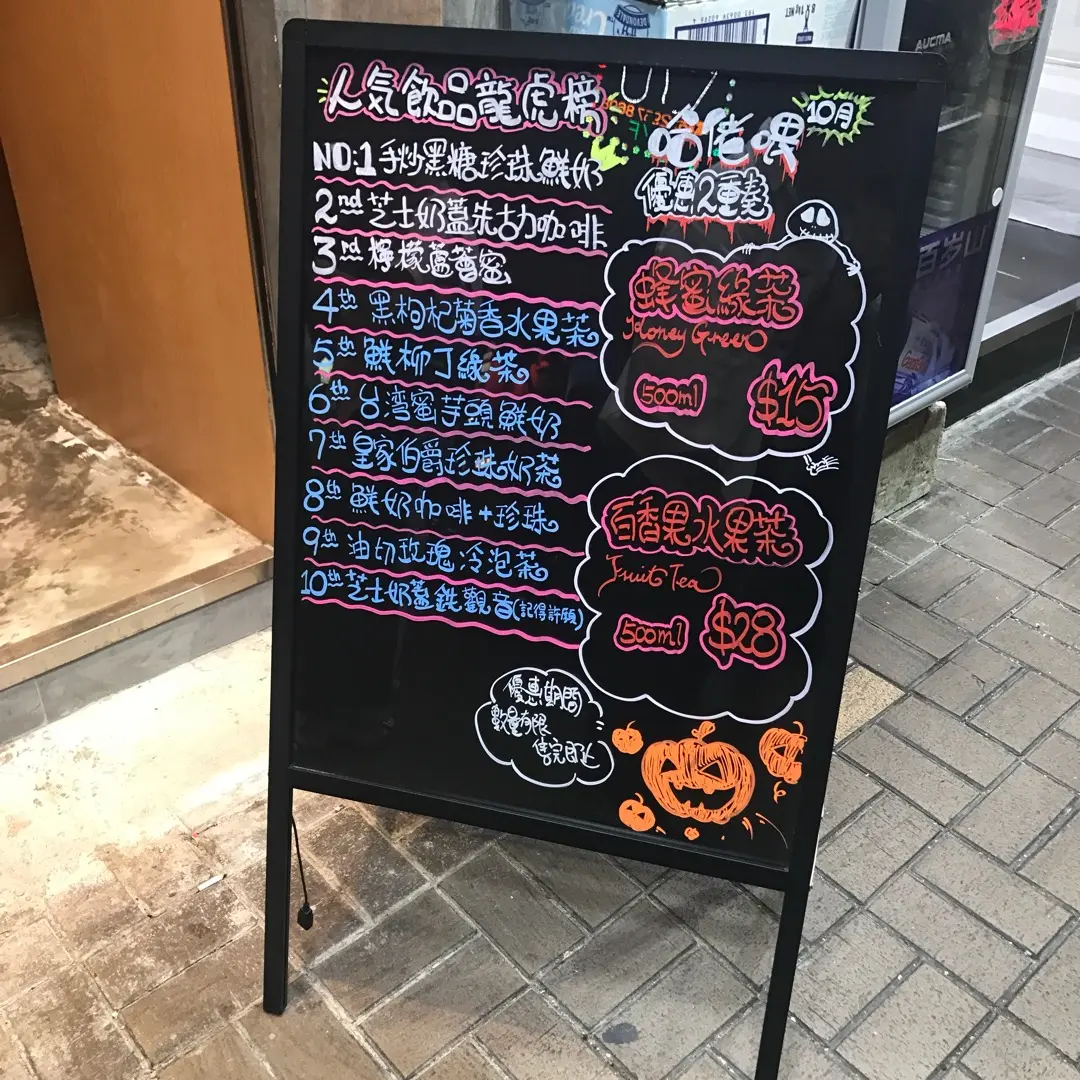 人气飲品龍虎榜
NO:1 手炒黑糖珍珠鮮奶
2nd 芝士奶蓋朱古力咖啡
3rd 檸檬蘆薈蜜
4th 黑枸杞菊香水果茶
5th 鮮柳丁綠茶
6th 台湾蜜芋頭鮮奶
7th 皇家伯爵珍珠奶茶
8th 鮮奶咖啡+珍珠
9th 油切玫瑰冷泡茶
10th 芝士奶蓋鉄觀音(記得許願)
10月
哈佬喂
優惠2重奏
蜂蜜綠茶
Honey Green
500ml
$15
百香果水果茶
Fruit Tea
500ml
$28
優惠期間
數量有限
售完即止
AUCMA
百岁山